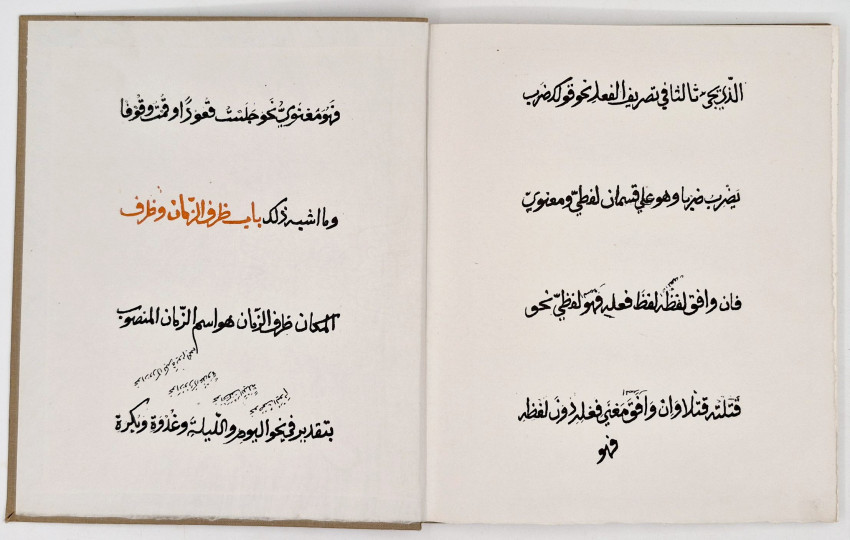 الذي يجيء ثالثا في تصريف الفعل نحو قولك ضرب
يضرب ضربا وهو على قسمان لفظيّ ومعنويّ
فان وافق لفظه لفظ فعله فهو لفظيّ نحو
قتلته قتلا وان وافق معنى فعله دون لفظه
فهو
فهو معنويّ نحو جلست قعودًا وقمت وقوفا
وما اشبه ذلك باب ظرف الزمان وظرف
المكان ظرف الزّمان هو اسم الزّمان المنصوب
بتقدير في نحو اليوم والليلة وغدوة وبكرة